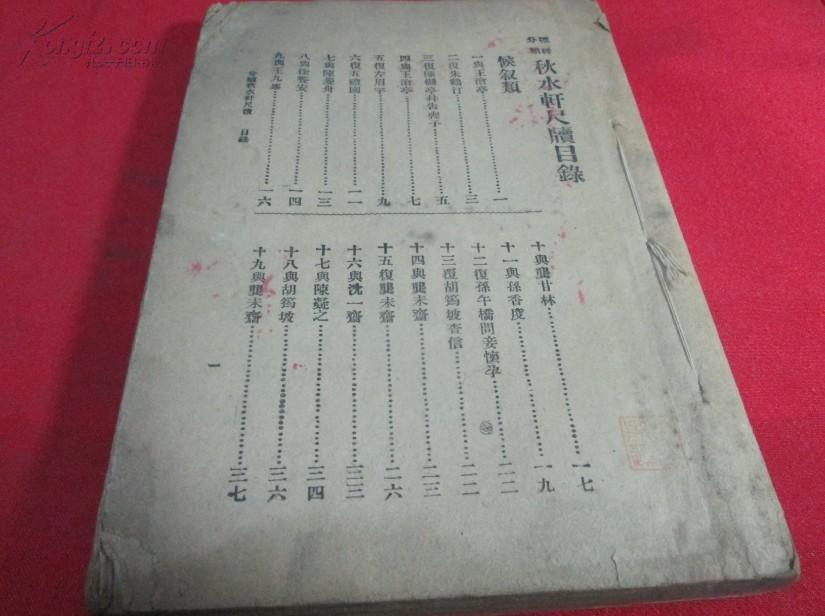 秋水軒尺牘目錄
候敘類
一與王滄亭……一
二復朱鶴汀……三
三復陳樹亭……五
四與王滄亭……七
五復左眉宇……九
六復五禮園……一一
七與陳凝舟……一三
八與徐……安……一四
九與王九……一六
十與龔甘林……一七
十一與孫香度……一九
十二復孫午橋問妾懷孕……二二
十三覆胡筠坡查信……二二
十四與龔未齋……二三
十五復龔未齋……二六
十六與沈一齋……三三
十七與陳凝之……三四
十八與胡筠坡……三六
十九與龔未齋……三七
分類秋水軒尺牘 目錄
一